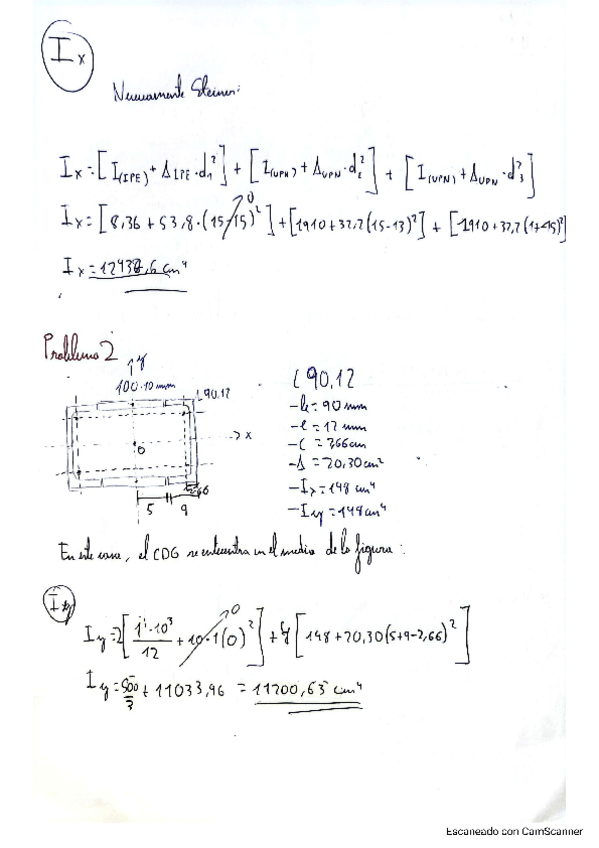 Ix
Nuevamente Steiner:
Ix = [I(IPE) + AIPE · d₁²] + [I(UPN) + AUPN · d₂²] + [I(UPN) + AUPN · d₃²]
Ix = [8,36 + 53,8 · (15-15)²]⁰ + [1910 + 37,2 (15-13)²] + [1910 + 37,2 (17-15)²]
Ix = 12438,6 cm⁴
Problema 2
y
100·10 mm
L90.12
x
G
2,66
5 9
L 90.12
- b = 90 mm
- e = 12 mm
- c = 2,66 cm
- A = 20,30 cm²
- Ix = 148 cm⁴
- Iy = 148 cm⁴
En este caso, el CDG se encuentra en el medio de la figura:
Iy
Iy = 2[1·10³/12 + 10·1(0)²]⁰ + 4[148 + 20,30 (5+9-2,66)²]
Iy = 500/3 + 11033,96 = 11200,63 cm⁴
Escaneado con CamScanner